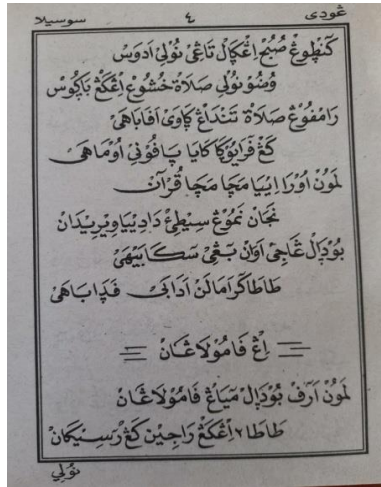 ڠودي ٤ سوسيلا
كَنْطَوْڠْ صُبُحْ اِڠْكَالْ تَاڠِيْ نُوْلِيْ اَدَوْسْ
وُضُوْ نُوْلِيْ صَلَاةْ خُشُوْعْ اِڠْكَڠْ بَاكُوْسْ
رَامْفُوْڠْ صَلَاةْ تَنْدَاڠْ كَاوَيْ اَفَابَاهَيْ
كَڠْ فَرَايَوْكَا كَايَا پَافَوْنِيْ اَوْمَاهَيْ
لَمَوْنْ اَوْرَا اِيْيَا مَچَا مَچَا قُرْآنْ
نَجَانْ نَمُوْڠْ سِيْطِئْ دَادِيْيَا وِيْرِيْدَانْ
بُوْدَالْ ڠَاجِيْ اَوَانْ بَڠِيْ سَكَابَيْهَيْ
طَاطَا كْرَامَا لَنْ اَدَابَيْ فَدَا بَاهَيْ
اِڠْ فَامُوْلَاڠَانْ
لَمَوْنْ اَرَفْ بُوْدَالْ مَيَاڠْ فَامُوْلَاڠَانْ
طَاطَا٢ اِڠْكَڠْ رَاجِيْنْ كَڠْ رَسِيْكَانْ
نُوْلِيْ